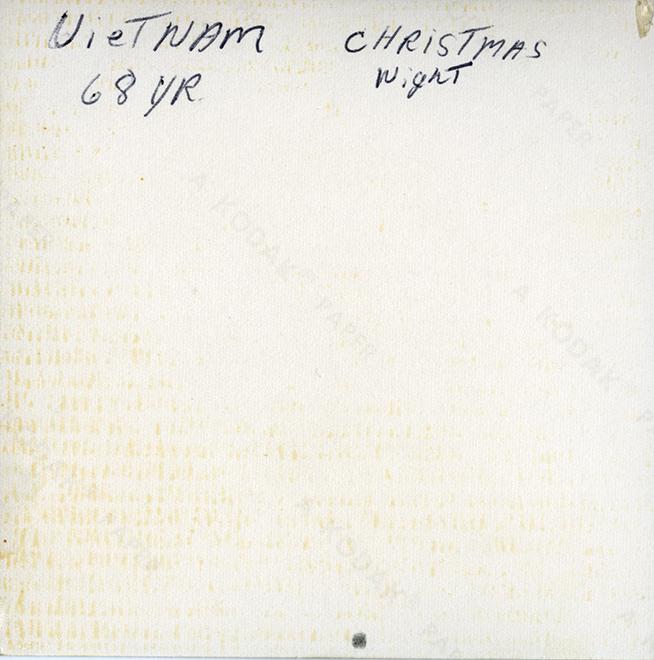 VieTNAM CHRISTMAS
68 YR NighT
A KODAK PAPER
A KODAK PAPER
A KODAK PAPER
PAPER